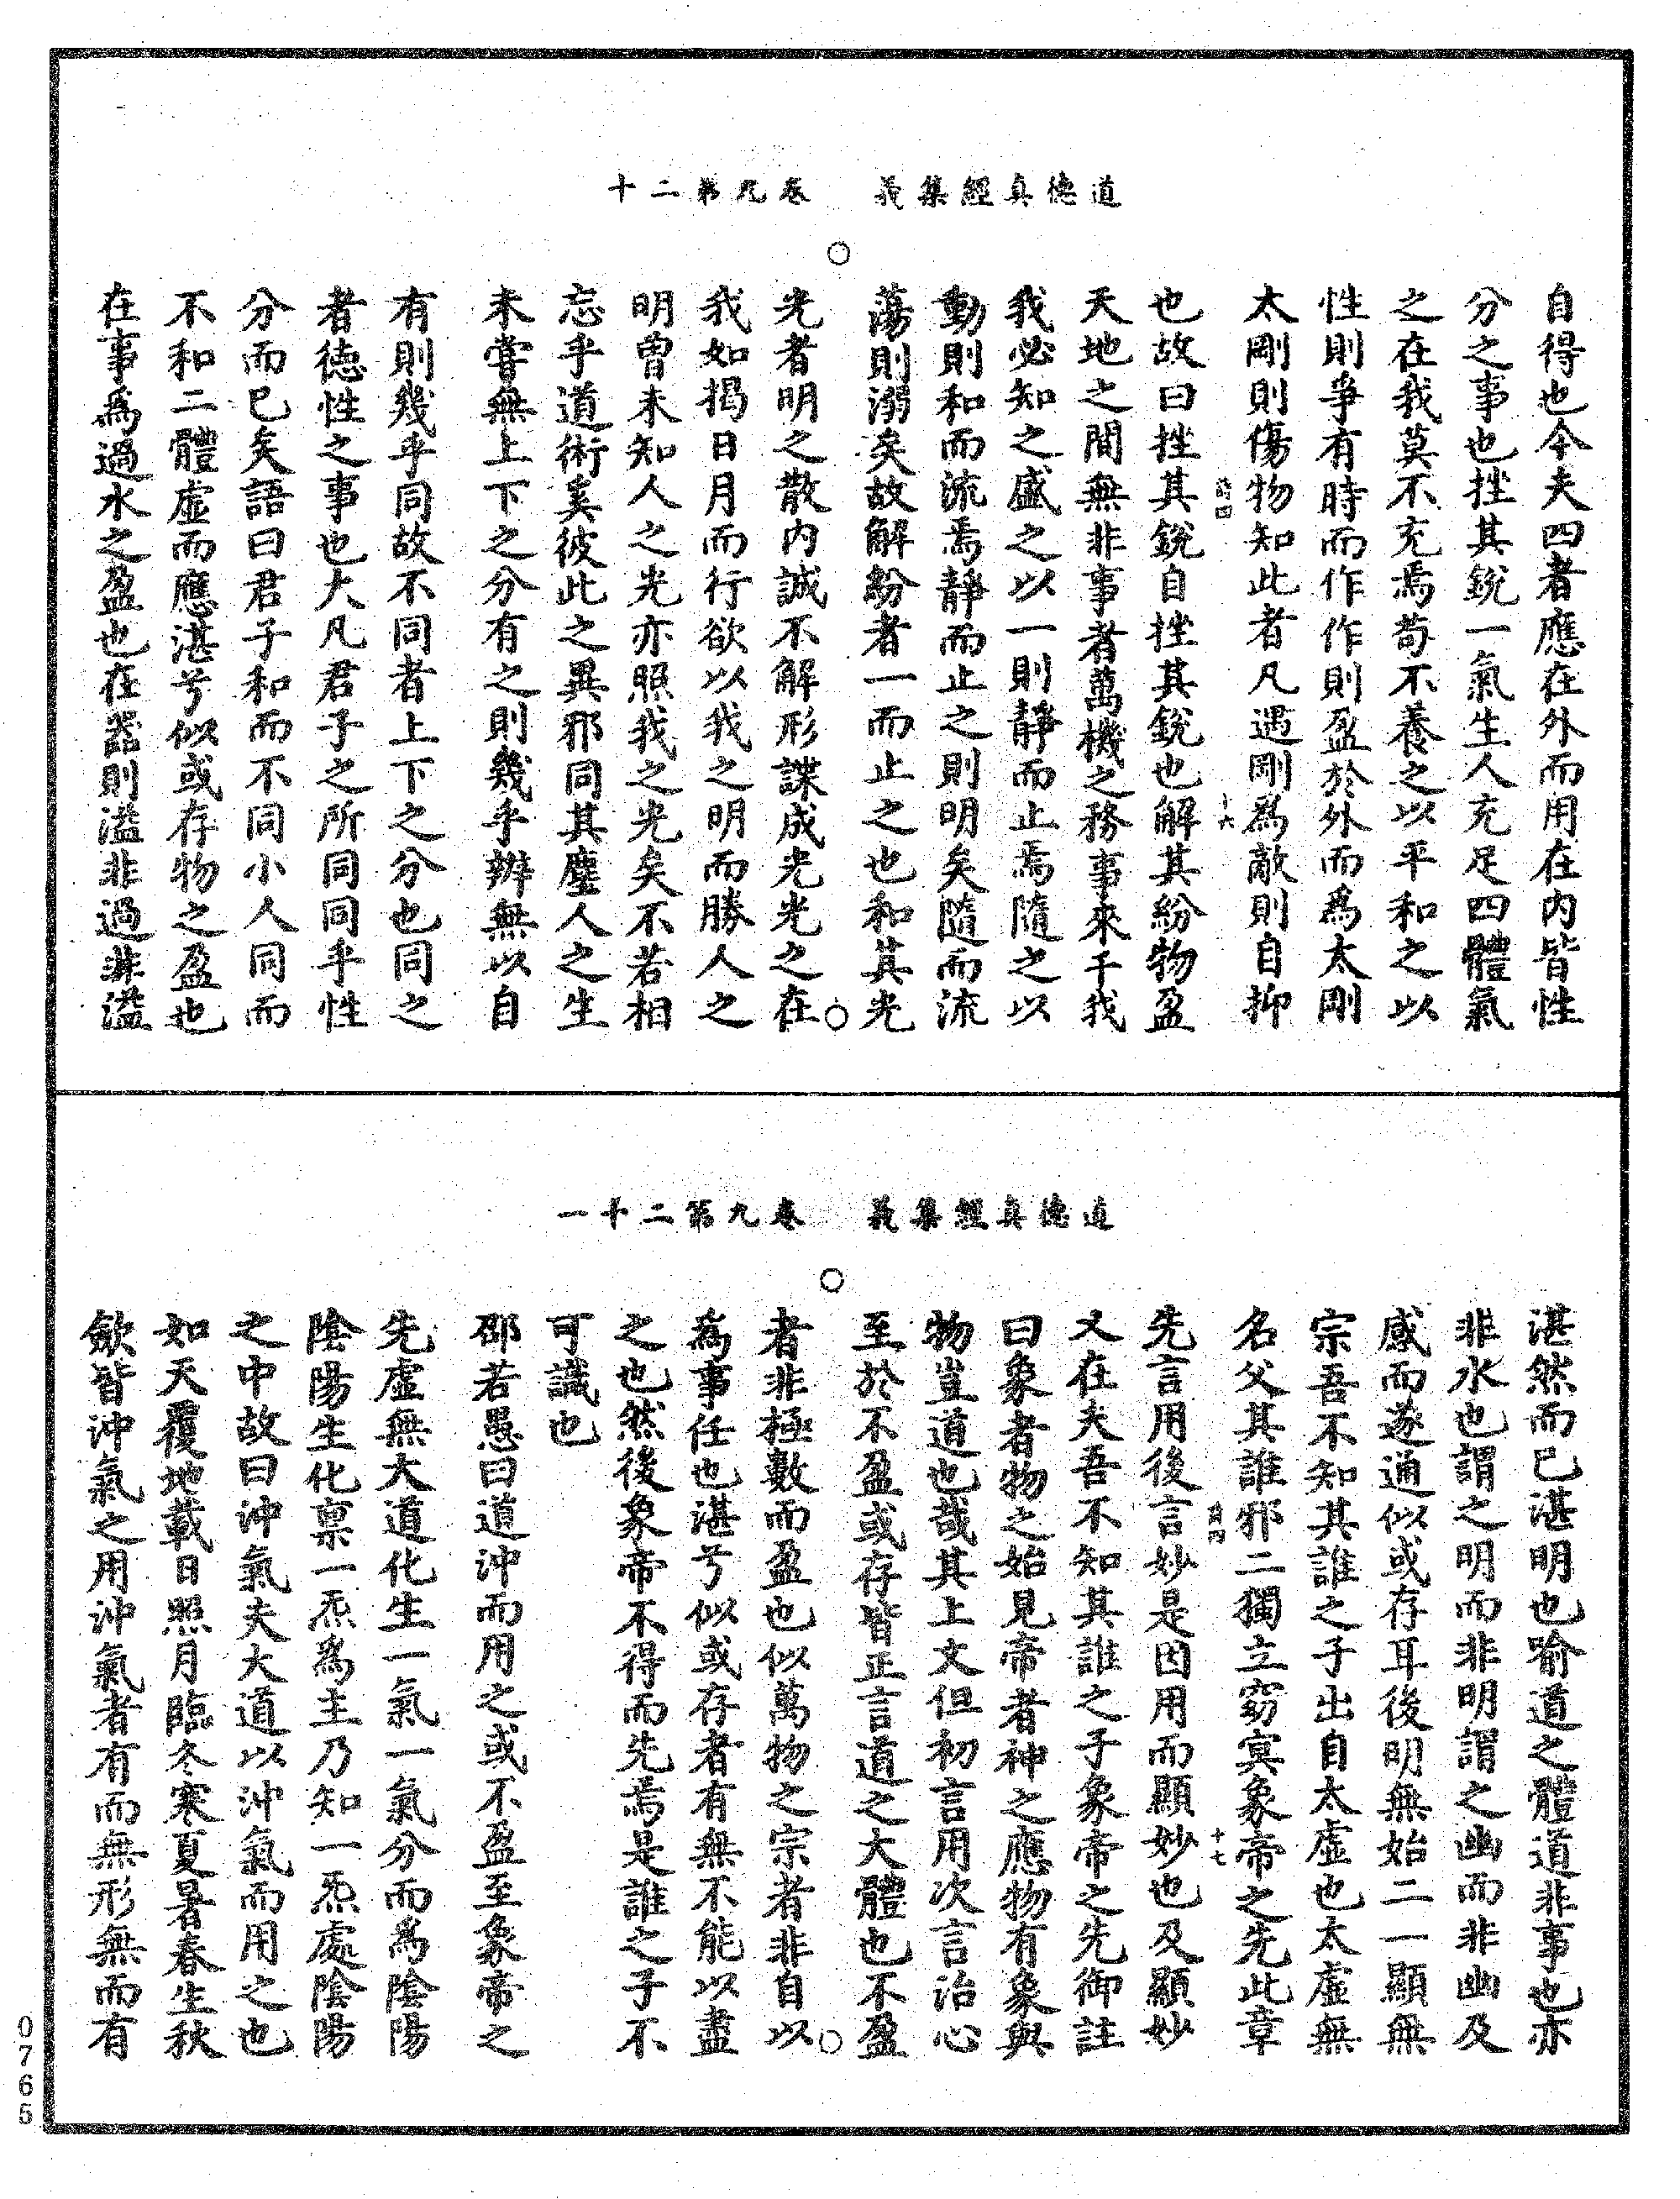 道德真經集義　卷九第二十
自得也今夫四者應在外而用在內皆性
分之事也挫其銳一氣生人充足四體氣
之在我莫不充焉苟不養之以平和之以
性則爭有時而作作則盈於外而為太剛
太剛則傷物知此者凡遇剛為敵則自抑
十六
也故曰挫其銳自挫其銳也解其紛物盈
天地之間無非事者萬機之務事來干我
我必知之盛之以一則靜而止焉隨之以
動則和而流焉靜而止之則明矣隨而流
蕩則溺矣故解紛者一而止之也和其光
光者明之散內誠不解形諜成光光之在
我如揭日月而行欲以我之明而勝人之
明曾未知人之光亦照我之光矣不若相
忘乎道術奚彼此之異邪同其塵人之生
未嘗無上下之分有之則幾乎辨無以自
有則幾乎同故不同者上下之分也同之
者德性之事也大凡君子之所同同乎性
分而已矣語曰君子和而不同小人同而
不和二體虛而應湛兮似或存物之盈也
在事為過水之盈也在器則溢非過非溢
道德真經集義　卷九第二十一
湛然而已湛明也喻道之體道非事也亦
非水也謂之明而非明謂之幽而非幽及
感而遂通似或存耳後明無始二一顯無
宗吾不知其誰之子出自太虛也太虛無
名父其誰邪二獨立窈冥象帝之先此章
十七
先言用後言妙是因用而顯妙也及顯妙
又在夫吾不知其誰之子象帝之先御註
曰象者物之始見帝者神之應物有象與
物豈道也哉其上文但初言用次言治心
至於不盈或存皆正言道之大體也不盈
者非極數而盈也似萬物之宗者非自以
為事任也湛兮似或存者有無不能以盡
之也然後象帝不得而先焉是誰之子不
可識也
邵若愚曰道沖而用之或不盈至象帝之
先虛無大道化生一氣一氣分而為陰陽
陰陽生化稟一炁為主乃知一炁處陰陽
之中故曰沖氣夫大道以沖氣而用之也
如天覆地載日照月臨冬寒夏暑春生秋
歛皆沖氣之用沖氣者有而無形無而有
0765